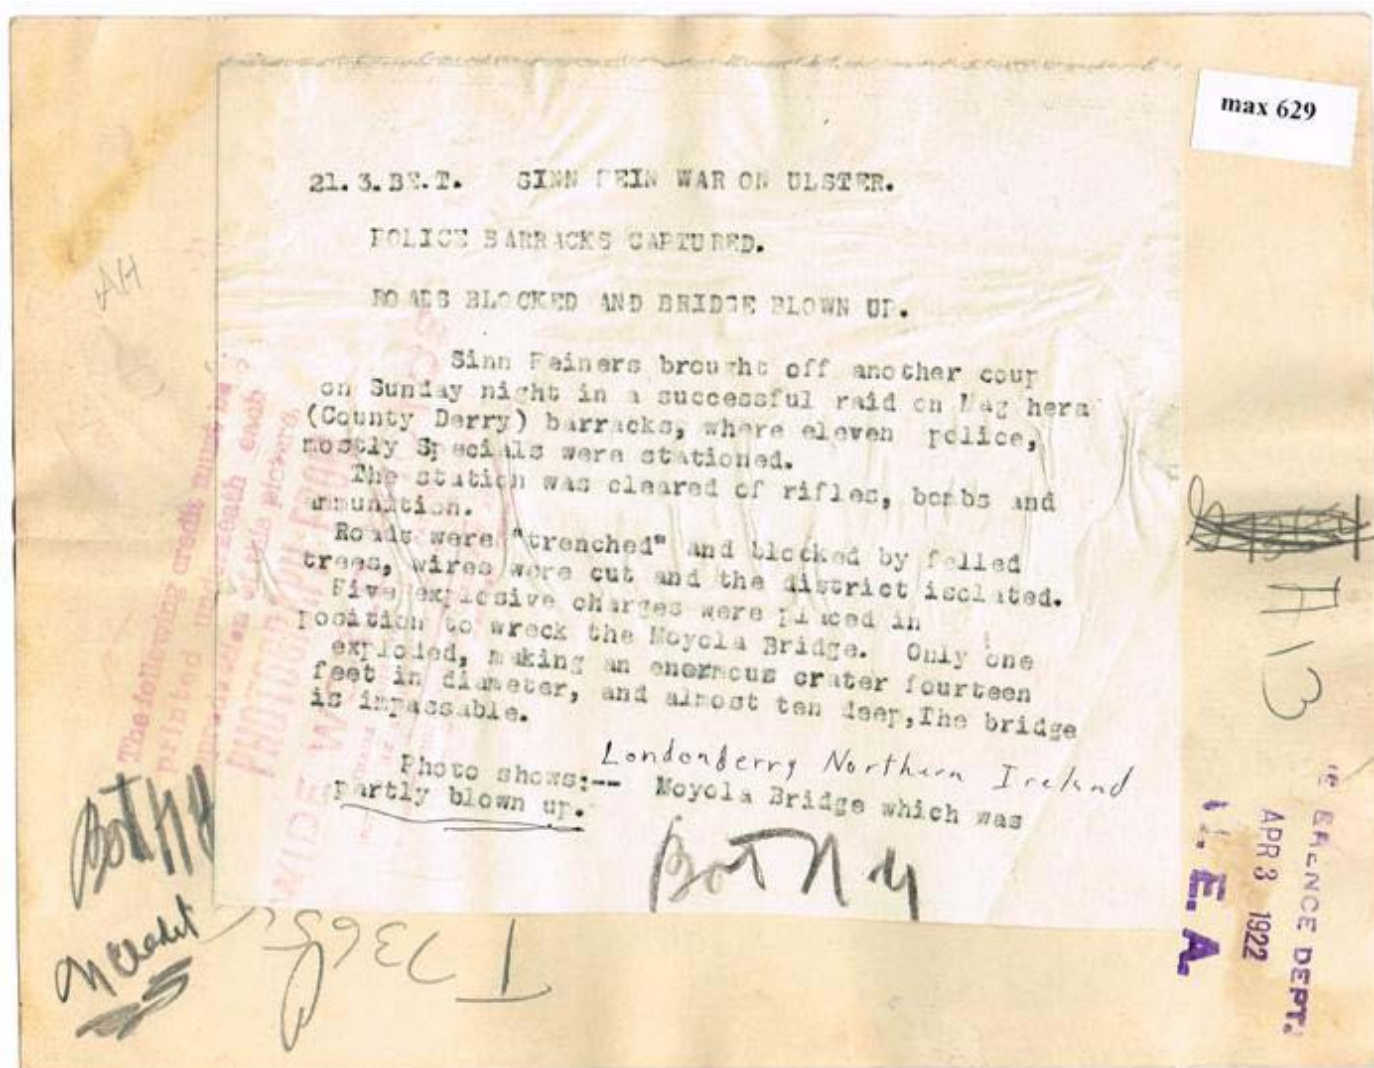 max 629
21. 3. BE.T. SINN FEIN WAR ON ULSTER.
POLICE BARRACKS CAPTURED.
ROADS BLOCKED AND BRIDGE BLOWN UP.
Sinn Feiners brought off another coup
on Sunday night in a successful raid on Maghera
(County Derry) barracks, where eleven police,
mostly Specials were stationed.
The station was cleared of rifles, bombs and
ammunition.
Roads were "trenched" and blocked by felled
trees, wires were cut and the district isolated.
Five explosive charges were placed in
position to wreck the Moyola Bridge. Only one
exploded, making an enormous crater fourteen
feet in diameter, and almost ten deep, The bridge
is impassable.
Londonderry Northern Ireland
Photo shows:-- Moyola Bridge which was
partly blown up.
AH
The following credit must be
printed underneath each
reproduction of this picture.
A13
DEPT.
APR 3 1922
E.A.
T